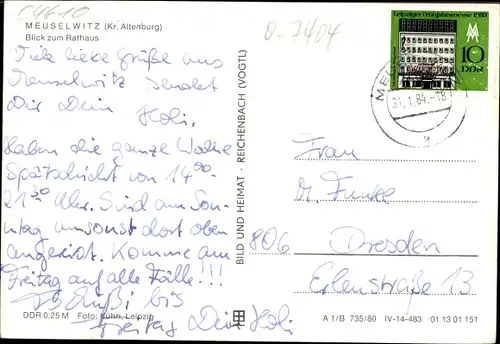 C4610
MEUSELWITZ (Kr. Altenburg)
Blick zum Rathaus
Viele liebe Grüße aus
Meuselwitz sendet
Dir Dein Holi.
Haben die ganze Woche
Spätschicht von 14°°
21³⁰ Uhr. Sind am Son-
tag umsonst dort oben
angereist. Komme am
Freitag auf alle Fälle!!!
Tschüßi bis
Freitag Dein Holi
DDR 0,25 M Foto: Kühn, Leipzig
BILD UND HEIMAT · REICHENBACH (VOGTL)
0-7404
Leipziger Frühjahrsmesse 1983
10
DDR
31.1.84.-18
a
Frau
M. Funke
806 Dresden
Erlenstraße 13
A 1/B 735/80 IV-14-483 01 13 01 151